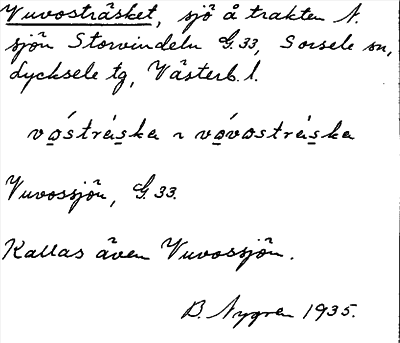 Vuvosträsket, sjö å trakten N.
sjön Storvindeln G. 33, Sorsele sn,
Lycksele tg, Västerb. l.
vo̲strä́ska ~ vo̲vosträ́ska
Vuvossjön, G. 33.
Kallas även Vuvossjön.
B. Nygren 1935.